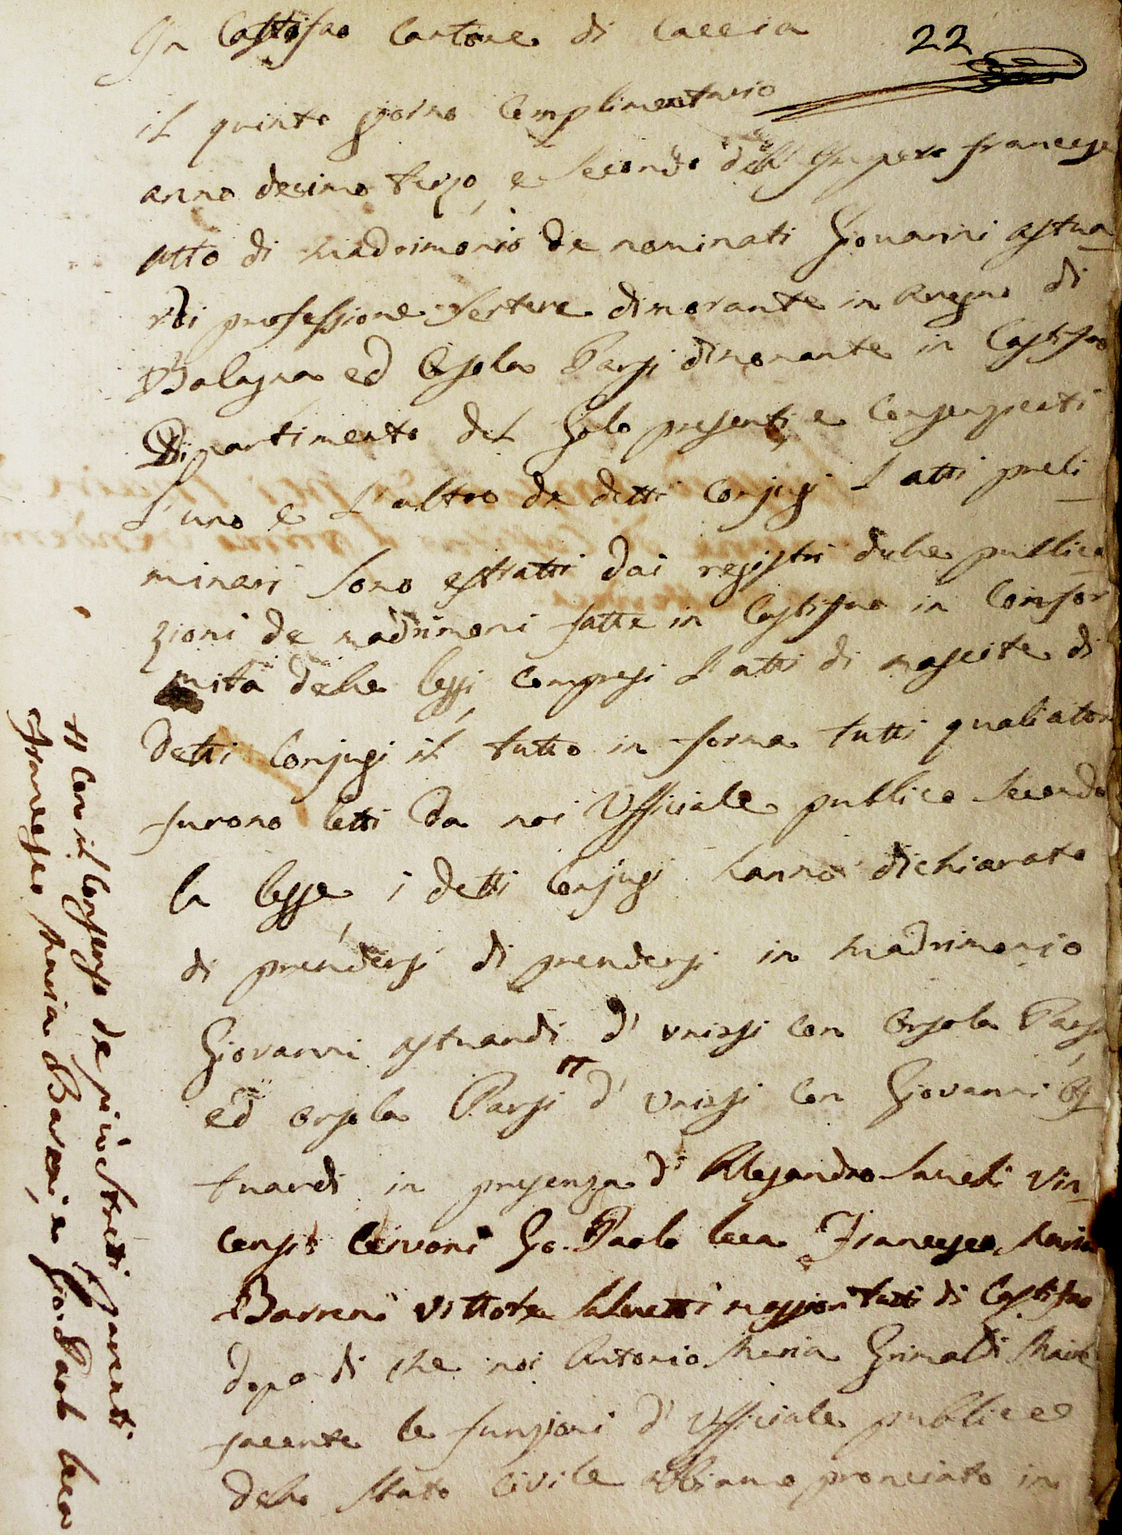 In Castifao Cantone di Caccia
22
il quinto giorno Complimentario
anno decimo terzo, e secondo dell' Impero francese
Atto di Madrimonio de nominati Giovanni astua
rdi professione dimorante in Aregno di
Balagna ed Orsola Parsi dimorante in Castifao
Dipartimento del Golo presenti, e Consenzienti
L'uno e L'altro de detti Conjugi L'atti preli
minari Sono estratti dai registri delle publica
zioni de madrimoni fatte in Castifao in Confor
mita delle leggi, compresi L'atti di nascite di
Detti Conjugi il tutto in forma tutti quali atti
furono letti da noi Ufficiale publico secondo
la legge, i detti Conjugi hanno dichiarato
di prendersi di prendersi in Madrimonio
Giovanni astuardi d' unirsi con Orsola Parsi
ed Orsola Parsi # d' unirsi con Giovanni As
tuardi in presenza d' Alesandro Saveli Vin
censo Cervoni Gio. Paolo leca Francesco Maria
Barreri Vittore Salvetti maggiori tutti di Castifao
dopo di che noi Antonio Maria Grimaldi Maire
facente le funzioni d' Ufficiale publico
dello Stato Civile abbiamo pronciato in
# Con il Consenso de piú stretti Parenti
Francesco Maria Bareri, e Gio. Paolo leca